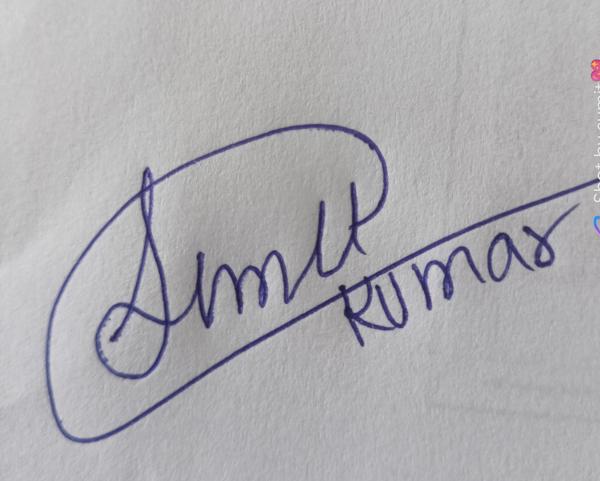 Sumit
Kumar
Shot by sumit💖